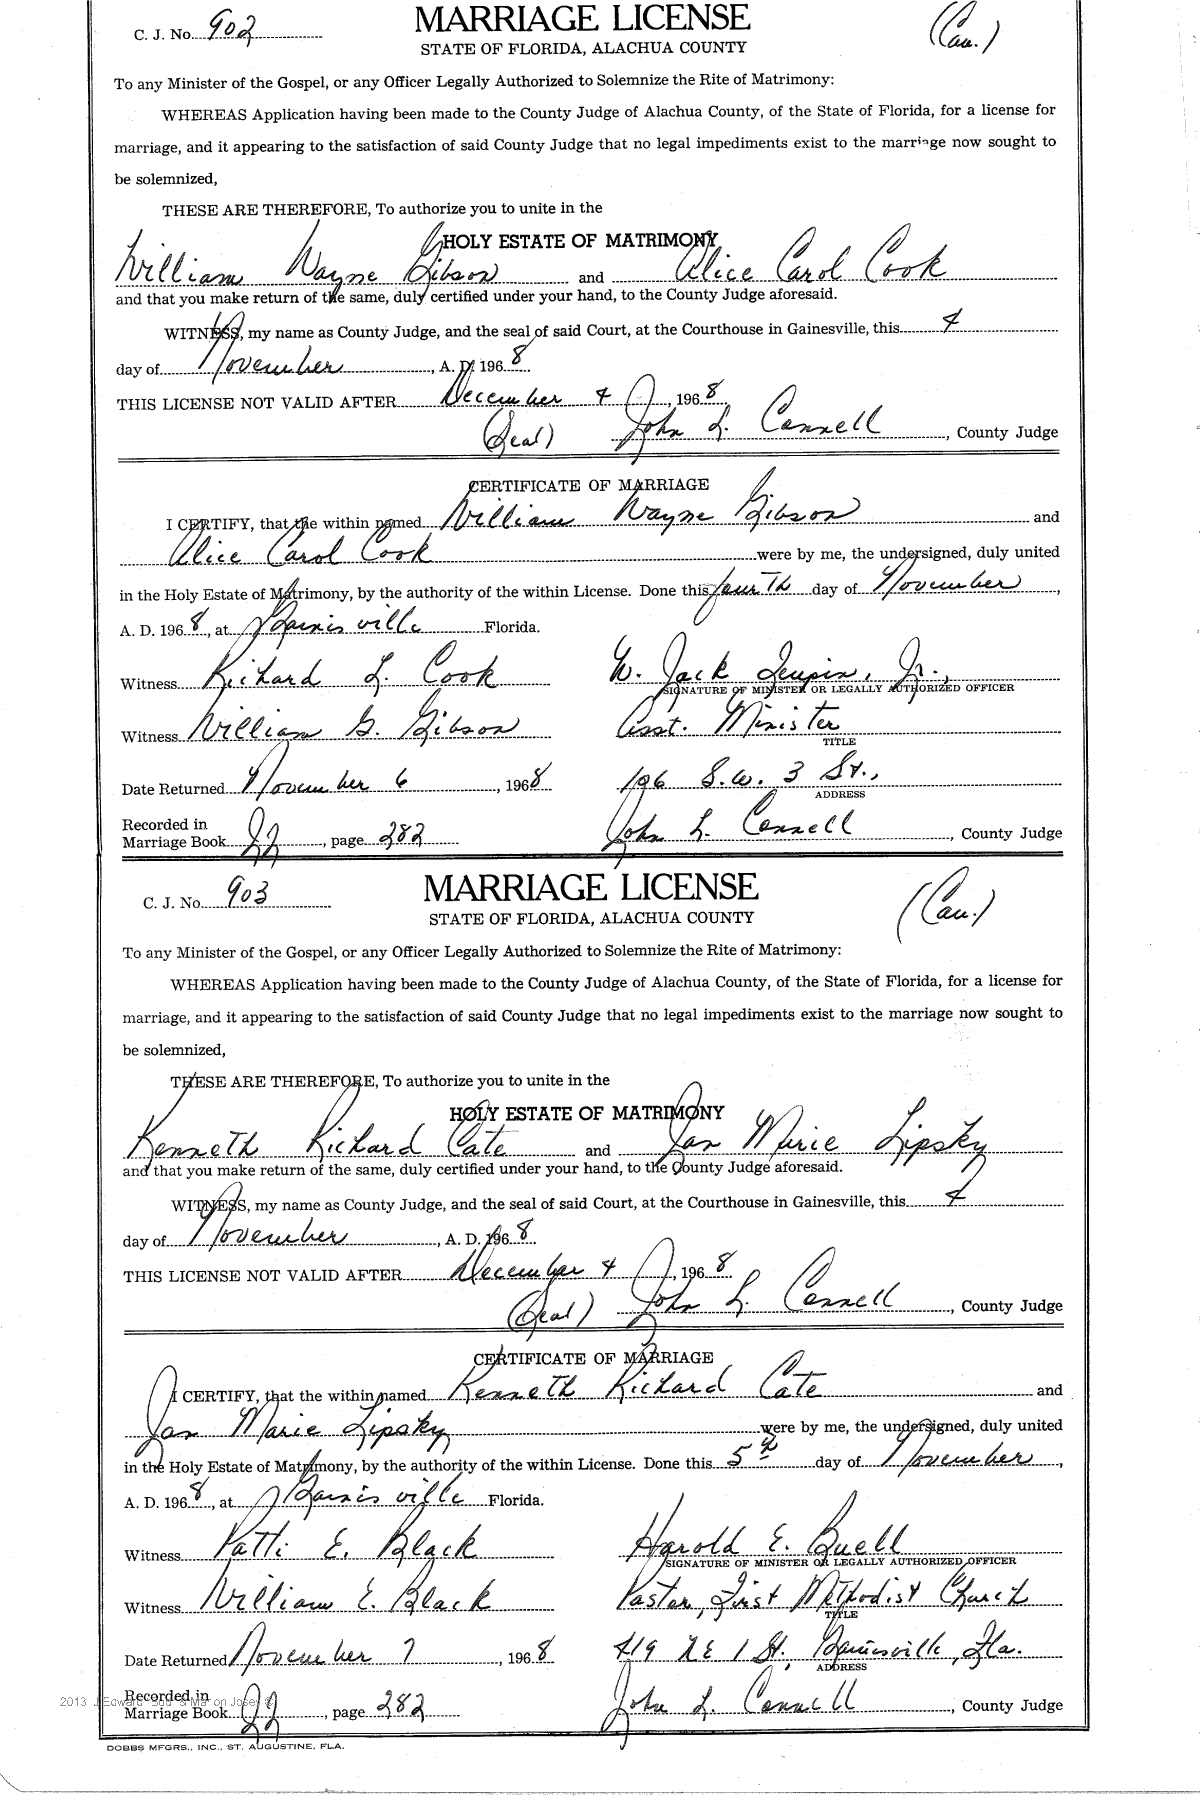 C. J. No. 902
MARRIAGE LICENSE
(Cau.)
STATE OF FLORIDA, ALACHUA COUNTY
To any Minister of the Gospel, or any Officer Legally Authorized to Solemnize the Rite of Matrimony:
WHEREAS Application having been made to the County Judge of Alachua County, of the State of Florida, for a license for
marriage, and it appearing to the satisfaction of said County Judge that no legal impediments exist to the marriage now sought to
be solemnized,
THESE ARE THEREFORE, To authorize you to unite in the
HOLY ESTATE OF MATRIMONY
William Wayne Gibson and Alice Carol Cook
and that you make return of the same, duly certified under your hand, to the County Judge aforesaid.
WITNESS, my name as County Judge, and the seal of said Court, at the Courthouse in Gainesville, this 4
day of November, A. D. 1968
THIS LICENSE NOT VALID AFTER December 4, 1968
(Seal) John L. Connell, County Judge
CERTIFICATE OF MARRIAGE
I CERTIFY, that the within named William Wayne Gibson and
Alice Carol Cook were by me, the undersigned, duly united
in the Holy Estate of Matrimony, by the authority of the within License. Done this fourth day of November,
A. D. 1968, at Gainisville Florida.
Witness Richard L. Cook W. Jack , Jr.,
SIGNATURE OF MINISTER OR LEGALLY AUTHORIZED OFFICER
Witness William G. Gibson Asst. Minister
TITLE
Date Returned November 6, 1968 S.W. 3 St.,
ADDRESS
Recorded in
Marriage Book 22, page 282 John L. Connell, County Judge
C. J. No. 903
MARRIAGE LICENSE
(Cau.)
STATE OF FLORIDA, ALACHUA COUNTY
To any Minister of the Gospel, or any Officer Legally Authorized to Solemnize the Rite of Matrimony:
WHEREAS Application having been made to the County Judge of Alachua County, of the State of Florida, for a license for
marriage, and it appearing to the satisfaction of said County Judge that no legal impediments exist to the marriage now sought to
be solemnized,
THESE ARE THEREFORE, To authorize you to unite in the
HOLY ESTATE OF MATRIMONY
Kenneth Richard Cate and Jan Marie Lipsky
and that you make return of the same, duly certified under your hand, to the County Judge aforesaid.
WITNESS, my name as County Judge, and the seal of said Court, at the Courthouse in Gainesville, this 4
day of November, A. D. 1968
THIS LICENSE NOT VALID AFTER December 4, 1968
(Seal) John L. Connell, County Judge
CERTIFICATE OF MARRIAGE
I CERTIFY, that the within named Kenneth Richard Cate and
Jan Marie Lipsky were by me, the undersigned, duly united
in the Holy Estate of Matrimony, by the authority of the within License. Done this 5th day of November,
A. D. 1968, at Gainisville Florida.
Witness Patti E. Black Harold E. Buell
SIGNATURE OF MINISTER OR LEGALLY AUTHORIZED OFFICER
Witness William E. Black Pastor, First Methodist Church
TITLE
Date Returned November 7, 1968 419 NE 1 St., Gainesville, Fla.
ADDRESS
Recorded in
Marriage Book 22, page 282 John L. Connell, County Judge
DOBBS MFGRS., INC., ST. AUGUSTINE, FLA.